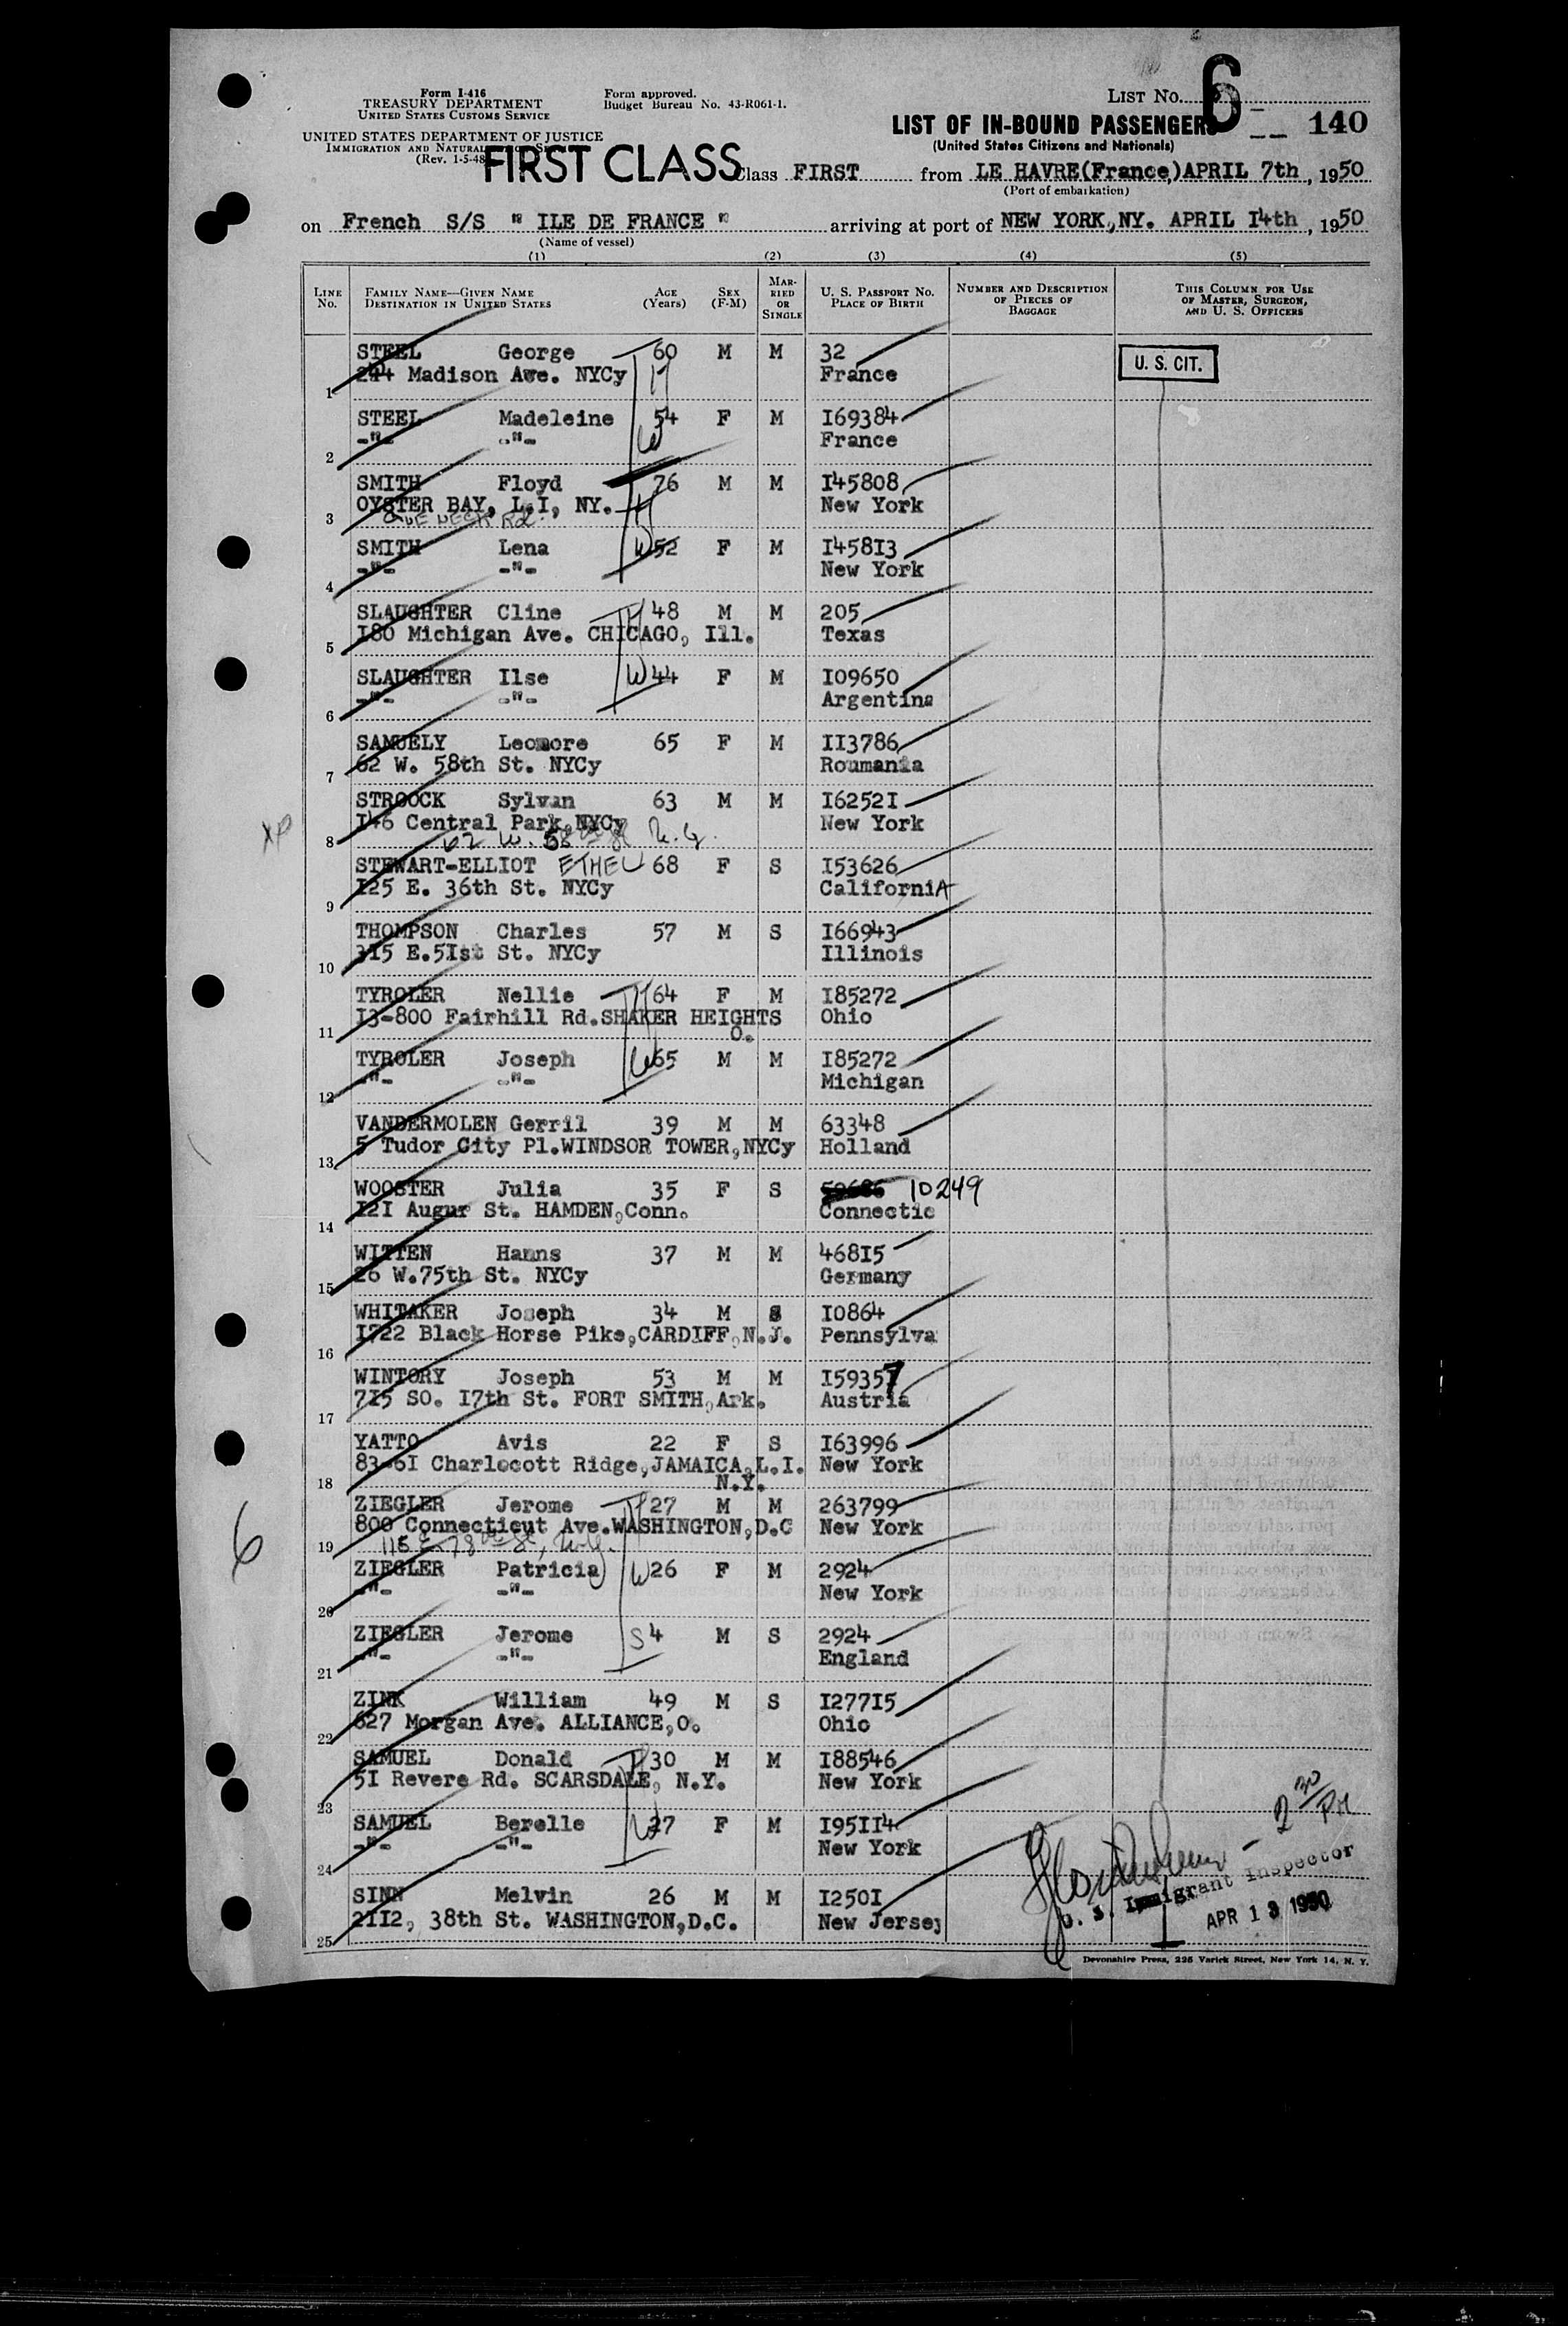 6
Form I-416
TREASURY DEPARTMENT
UNITED STATES CUSTOMS SERVICE
Form approved.
Budget Bureau No. 43-R061-1.
LIST No. 6
UNITED STATES DEPARTMENT OF JUSTICE
(Rev. 1-5-48)
LIST OF IN-BOUND PASSENGERS
140
(United States Citizens and Nationals)
FIRST CLASS
Class FIRST from LE HAVRE(France,)APRIL 7th, 1950
(Port of embarkation)
on French S/S " ILE DE FRANCE " arriving at port of NEW YORK,NY. APRIL I4th, 1950
(Name of vessel)
(1) (2) (3) (4) (5)
LINE No. FAMILY NAME—GIVEN NAME DESTINATION IN UNITED STATES AGE (Years) SEX (F-M) MARRIED OR SINGLE U. S. PASSPORT No. PLACE OF BIRTH NUMBER AND DESCRIPTION OF PIECES OF BAGGAGE THIS COLUMN FOR USE OF MASTER, SURGEON, AND U. S. OFFICERS
STEEL George 60 M M 32
U. S. CIT.
1 244 Madison Ave. NYCy H France
STEEL Madeleine 54 F M I69384
2 -"- -"- W France
SMITH Floyd 76 M M I45808
3 OYSTER BAY, L.I, NY. H New York
NECK Rd.
SMITH Lena W 52 F M I45813
4 -"- -"- New York
SLAUGHTER Cline H 48 M M 205
5 I80 Michigan Ave. CHICAGO, Ill. Texas
SLAUGHTER Ilse W 44 F M I09650
6 -"- -"- Argentina
SAMUELY Leomore 65 F M II3786
7 62 W. 58th St. NYCy Roumania
STROOCK Sylvan 63 M M I6252I
8 I46 Central Park,NYCy New York
62 W. 58th St N.Y.
STEWART-ELLIOT ETHEL 68 F S I53626
9 I25 E. 36th St. NYCy CaliforniA
THOMPSON Charles 57 M S I66943
10 3I5 E.5Ist St. NYCy Illinois
TYROLER Nellie H 64 F M I85272
11 I3-800 Fairhill Rd.SHAKER HEIGHTS Ohio
O.
TYROLER Joseph W 65 M M I85272
12 -"- -"- Michigan
VANDERMOLEN Gerril 39 M M 63348
13 5 Tudor City Pl.WINDSOR TOWER,NYCy Holland
WOOSTER Julia 35 F S 10249
14 I2I Augur St. HAMDEN,Conn. Connectic
WITTEN Hanns 37 M M 468I5
15 26 W.75th St. NYCy Germany
WHITAKER Joseph 34 M S I0864
16 I722 Black Horse Pike,CARDIFF,N.J. Pennsylva
WINTORY Joseph 53 M M I59357
17 7I5 SO. I7th St. FORT SMITH,Ark. Austria
YATTO Avis 22 F S I63996
18 83-6I Charlecott Ridge,JAMAICA,L.I. New York
N.Y.
ZIEGLER Jerome H 27 M M 263799
19 800 Connecticut Ave.WASHINGTON,D.C New York
115 E. 78th St, N.Y.
ZIEGLER Patricia W 26 F M 2924
20 -"- -"- New York
ZIEGLER Jerome S 4 M S 2924
21 -"- -"- England
ZINK William 49 M S I277I5
22 627 Morgan Ave. ALLIANCE,O. Ohio
SAMUEL Donald H 30 M M I88546
23 5I Revere Rd. SCARSDALE, N.Y. New York
SAMUEL Berelle W 27 F M I95II4
24 -"- -"- New York
2 30/PM
SINN Melvin 26 M M I250I
25 2II2, 38th St. WASHINGTON,D.C. New Jersej
U. S. Immigrant Inspector
APR 13 1950
Devonshire Press, 225 Varick Street, New York 14, N. Y.
6